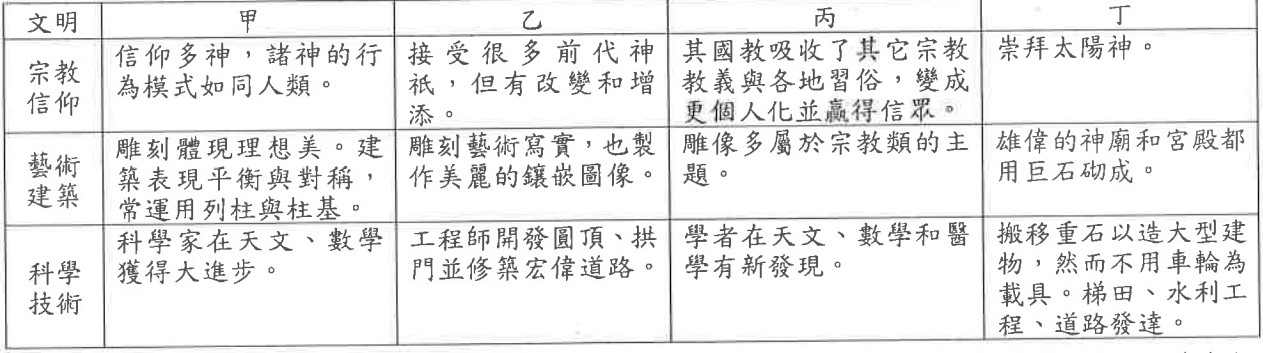 文明 甲 乙 丙 丁
宗教
信仰
信仰多神，諸神的行
為模式如同人類。
接受很多前代神
祇，但有改變和增
添。
其國教吸收了其它宗教
教義與各地習俗，變成
更個人化並贏得信眾。
崇拜太陽神。
藝術
建築
雕刻體現理想美。建
築表現平衡與對稱，
常運用列柱與柱基。
雕刻藝術寫實，也製
作美麗的鑲嵌圖像。
雕像多屬於宗教類的主
題。
雄偉的神廟和宮殿都
用巨石砌成。
科學
技術
科學家在天文、數學
獲得大進步。
工程師開發圓頂、拱
門並修築宏偉道路。
學者在天文、數學和醫
學有新發現。
搬移重石以造大型建
物，然而不用車輪為
載具。梯田、水利工
程、道路發達。